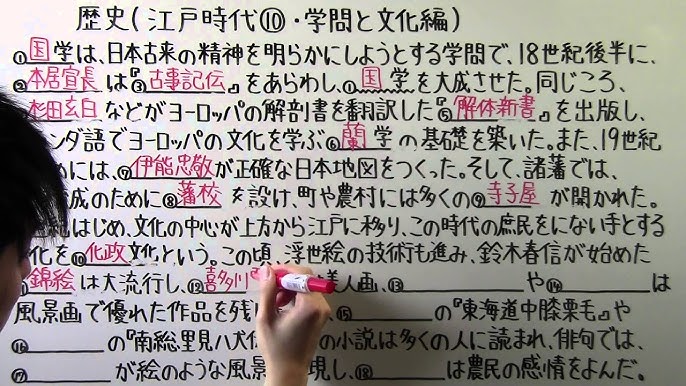 歴史(江戸時代⑩・学問と文化編)
①国学は、日本古来の精神を明らかにしようとする学問で、18世紀後半に、
本居宣長は『③古事記伝』をあらわし、①国学を大成させた。同じころ、
杉田玄白などがヨーロッパの解剖書を翻訳した『⑤解体新書』を出版し、
ンダ語でヨーロッパの文化を学ぶ⑥蘭学の基礎を築いた。また、19世紀
めには、⑦伊能忠敬が正確な日本地図をつくった。そして、諸藩では、
成のために⑧藩校を設け、町や農村には多くの⑨寺子屋が開かれた。
はじめ、文化の中心が上方から江戸に移り、この時代の庶民をにない手とする
化を⑩化政文化という。この頃、浮世絵の技術も進み、鈴木春信が始めた
錦絵は大流行し、⑫喜多川 美人画、⑬ や⑭ は
風景画で優れた作品を残 ⑮ の『東海道中膝栗毛』や
⑯ の『南総里見八犬伝 の小説は多くの人に読まれ、俳句では、
⑰ が絵のような風景 現し、⑱ は農民の感情をよんだ。